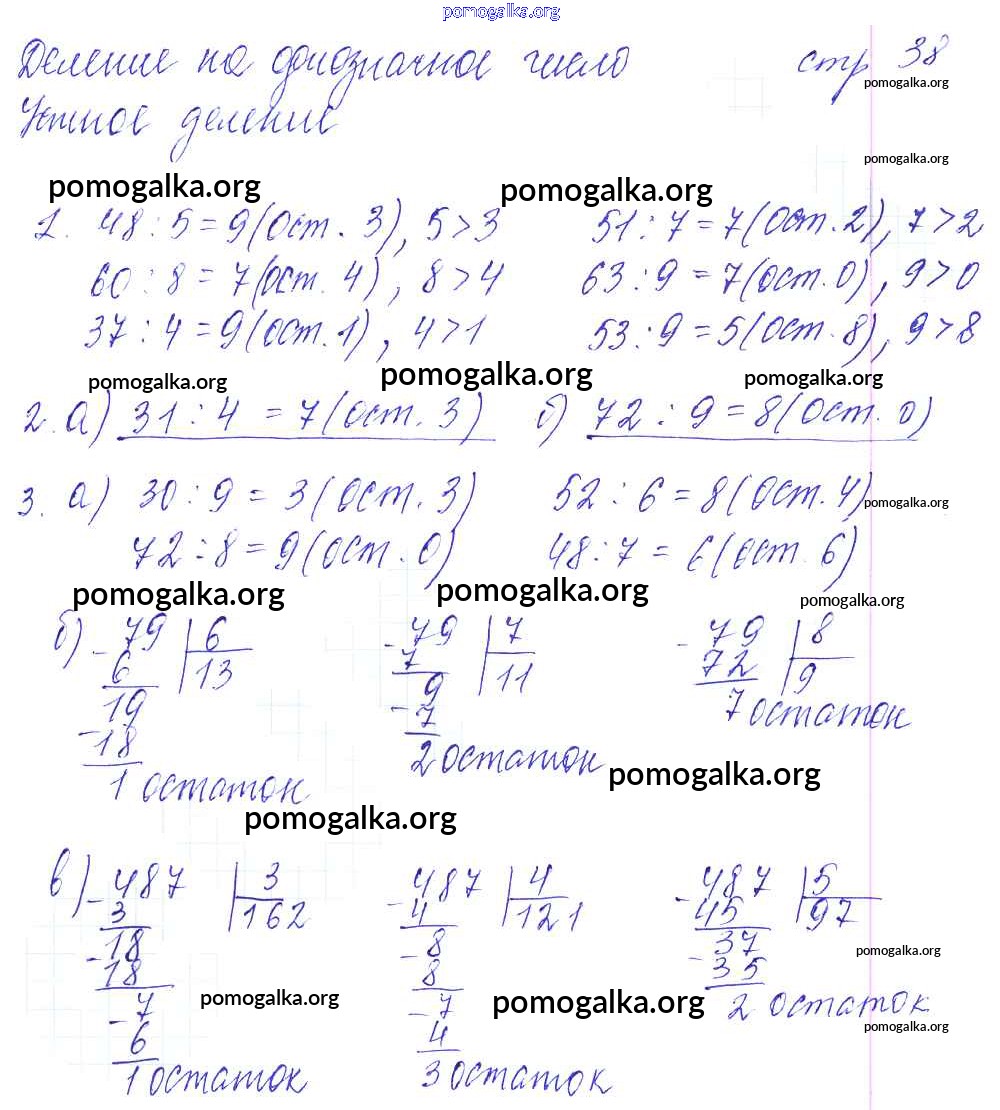 pomogalka.org
Деление на однозначное число стр 38
pomogalka.org
Устное деление
pomogalka.org
pomogalka.org pomogalka.org
1. 48 : 5 = 9 (Ост. 3), 5 > 3 51 : 7 = 7 (Ост. 2), 7 > 2
60 : 8 = 7 (ост. 4), 8 > 4 63 : 9 = 7 (ост. 0), 9 > 0
37 : 4 = 9 (ост. 1), 4 > 1 53 : 9 = 5 (ост. 8), 9 > 8
pomogalka.org pomogalka.org pomogalka.org
2. а) 31 : 4 = 7 (ост. 3) б) 72 : 9 = 8 (Ост. 0)
3. а) 30 : 9 = 3 (Ост. 3) 52 : 6 = 8 (Ост. 4)
pomogalka.org
72 : 8 = 9 (ост. 0) 48 : 7 = 6 (ост. 6)
pomogalka.org pomogalka.org pomogalka.org
б) - 79 | 6 - 79 | 7 - 79 | 8
6 | 13 7 | 11 72 | 9
19 9 7 остаток
- 18 - 7
1 остаток 2 остаток
pomogalka.org
pomogalka.org
в) - 487 | 3 - 487 | 4 - 487 | 5
3 | 162 4 | 121 45 | 97
- 18 - 8 - 37
18 8 35
pomogalka.org
- 7 - 7 2 остаток
pomogalka.org pomogalka.org
pomogalka.org
6 4
1 остаток 3 остаток